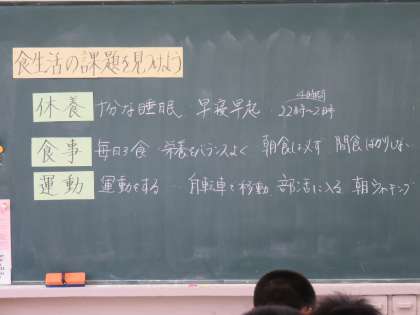 食生活の課題を見つけよう
休養 十分な睡眠 早寝早起 22時~2時
食事 毎日3食 栄養をバランスよく 朝食は必ず 間食ばかりしない
運動 運動をする … 自転車で移動 部活に入る 朝ジョギング